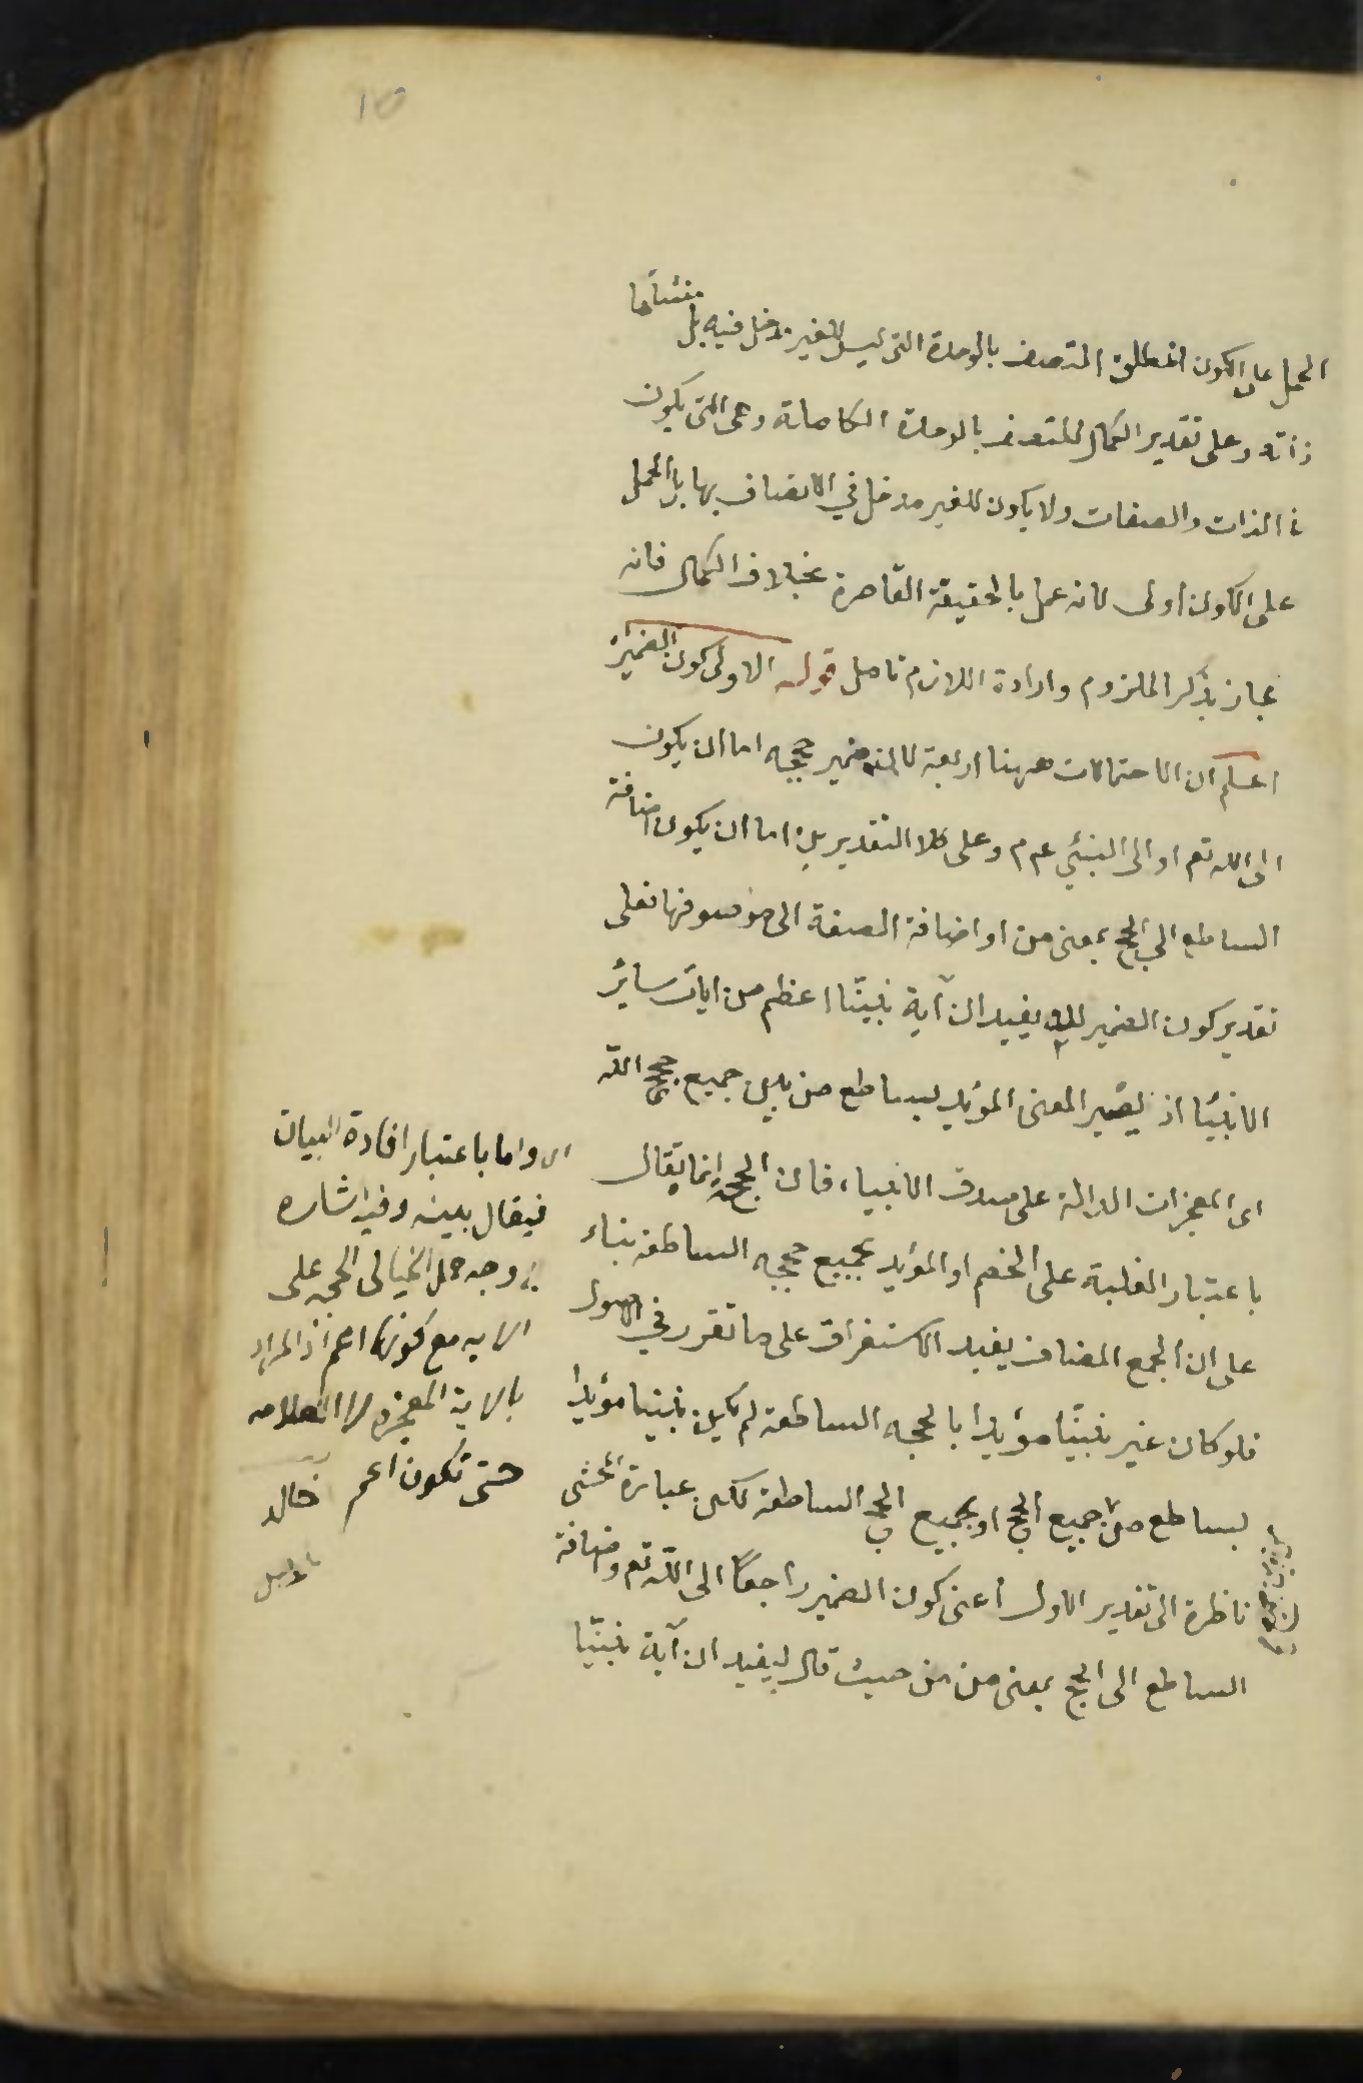 الحمل على الكون المطلق المتصف بالوحدة التى ليس للغير مدخل فيه بل منشأها
ذاته وعلى تقدير الكمال المتصف بالوحدة الكاملة وهى التى يكون
فى الذات والصفات ولا يكون للغير مدخل في الاتصاف بها بل الحمل
على الاول اولى لانه عمل بالحقيقة القاصرة بخلاف الكمال فانه
مجاز بذكر الملزوم وارادة اللازم تأمل قوله الاولى كون الضمير
اعلم ان الاحتمالات ههنا اربعة لان ضمير حججه اما ان يكون
الى الله تع او الى النبي عم م وعلى كلا التقديرين اما ان يكون اضافة
الساطع الى الحجج بمعنى من او اضافة الصفة الى موصوفها فعلى
تقدير كون الضمير لله يفيد ان آية نبينا اعظم من ايات سائر
الانبياء اذ يصير المعنى المؤيد بساطع من بين جميع حجج الله
اى المعجزات الدالة على صدق الانبياء فان الحجة انما يقال
باعتبار الغلبة على الخصم او المؤيد بجميع حججه الساطعة بناء
على ان الجمع المضاف يفيد الاستغراق على ما تقرر في الاصول
فلو كان غير نبينا مؤيدا بالحجه الساطعة لم يكن نبينا مؤيدا
بساطع من جميع الحجج او بجميع الحجج الساطعة لكن عبارة المحشى
ناظرة الى تقدير الاول اعنى كون الضمير راجعا الى الله تع واضافة
الساطع الى الحجج بمعنى من من حيث قال ليفيد ان آية نبينا
اى واما باعتبار افادة البيان
فيقال بينه وفيه اشاره
الى وجه حمل الخيالى الحجه على
الايه مع كونها اعم اذ المراد
بالاية المعجزه لا العلامه
حتى تكون اعم خالد